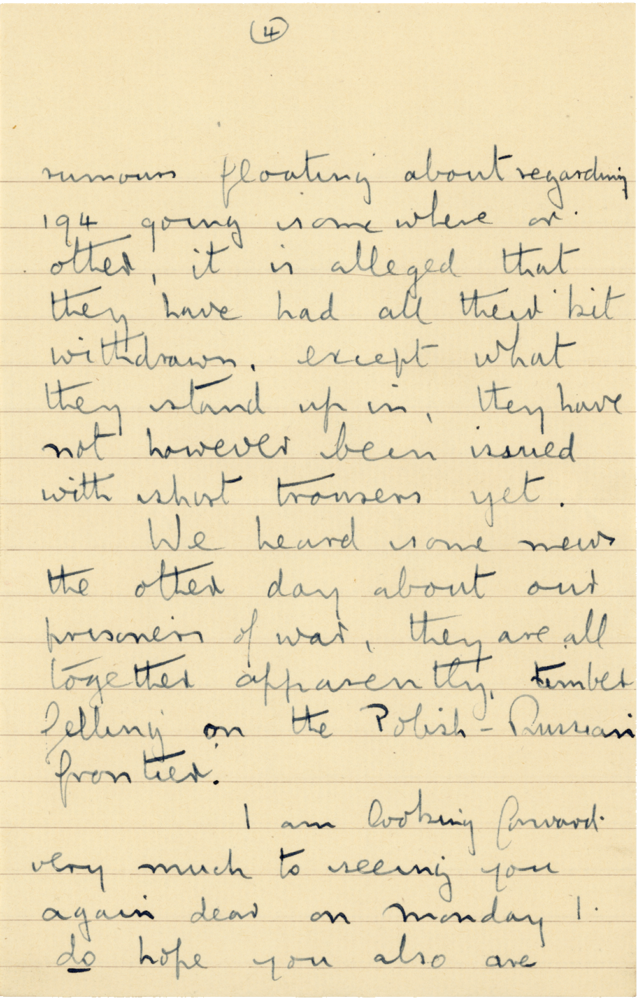 4
rumours floating about regarding
194 going some where or
other, it is alleged that
they have had all their kit
withdrawn, except what
they stand up in, they have
not however been issued
with short trousers yet.
We heard some news
the other day about our
prisoners of war, they are all
together apparently, timber
felling on the Polish - Russian
frontier.
I am looking forward
very much to seeing you
again dear on monday I
do hope you also are